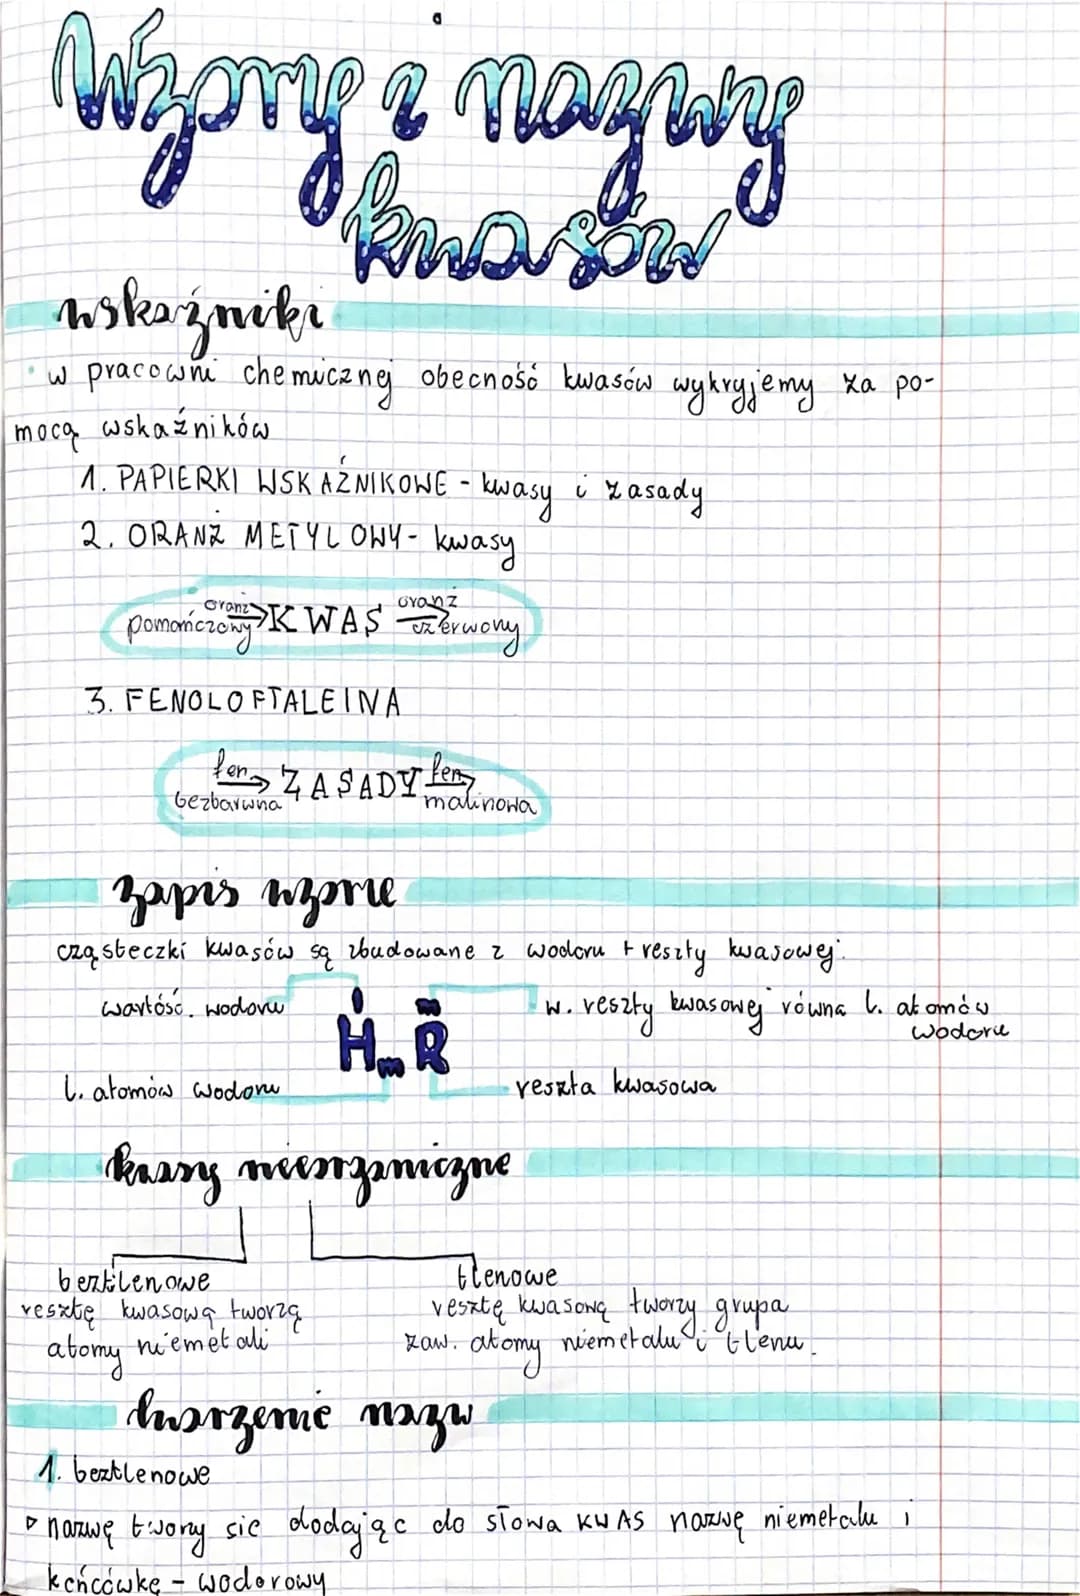 Wzory i nazwy
kwasów
wskaźniki
• w pracowni chemicznej obecność kwasów wykryjemy za po-
mocą wskaźników
1. PAPIERKI WSKAŹNIKOWE - kwasy i zasady
2. ORANŻ METYLOWY - kwasy
oranż pomarańczowy → KWAS oranż → czerwony
3. FENOLOFTALEINA
fen → bezbarwna ZASADY fen → malinowa
zapis wzoru
cząsteczki kwasów są zbudowane z wodoru + reszty kwasowej.
wartość. wodoru
I m
w. reszty kwasowej równa l. atomów
wodoru
HmR
l. atomów wodoru
reszta kwasowa
kwasy nieorganiczne
beztlenowe
resztę kwasową tworzą
atomy niemetali
tlenowe
resztę kwasową tworzy grupa
zaw. atomy niemetalu i tlenu.
tworzenie nazw
1. beztlenowe
▹ nazwę tworzy sie dodając do słowa KWAS nazwę niemetalu i
końcówkę - wodorowy